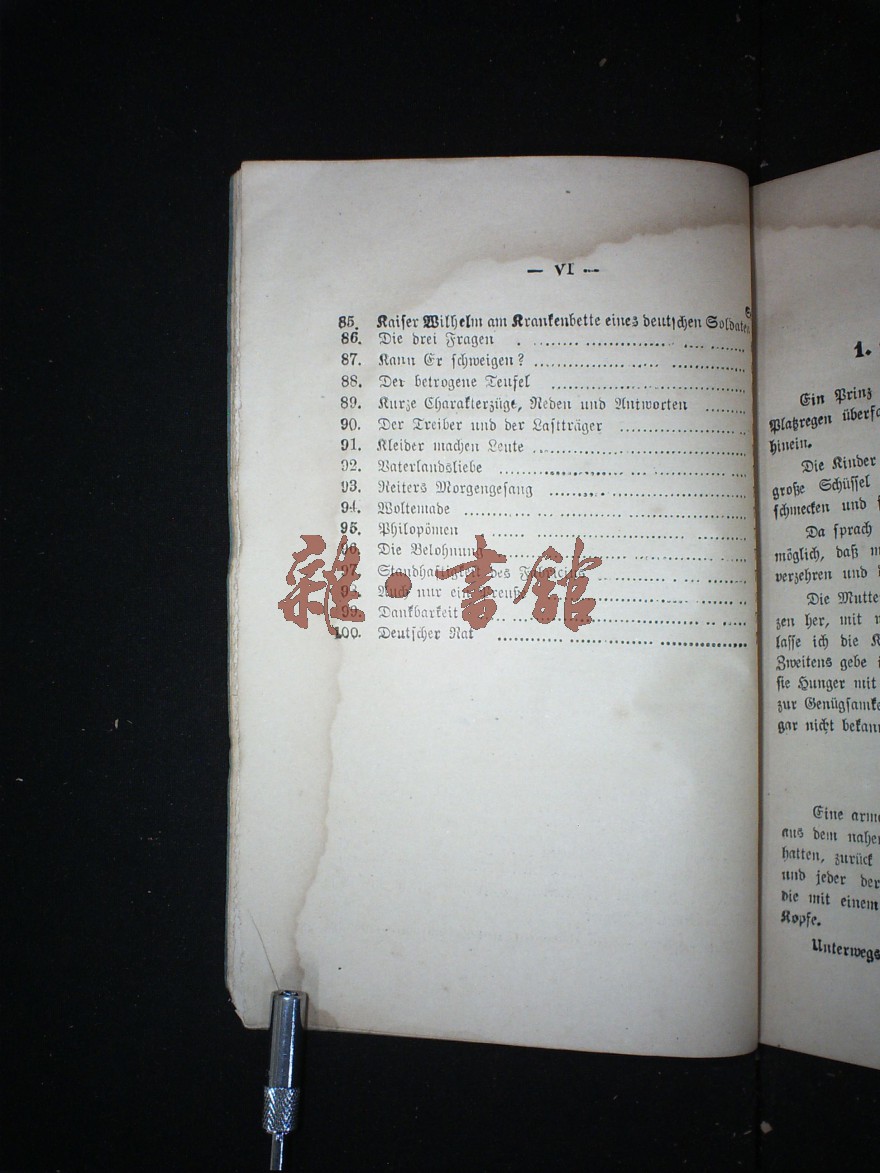 — VI —
S
85. Kaiser Wilhelm am Krankenbette eines deutschen Soldaten
86. Die drei Fragen
87. Kann Er schweigen?
88. Der betrogene Teufel
89. Kurze Charakterzüge, Reden und Antworten
90. Der Treiber und der Lastträger
91. Kleider machen Leute
92. Vaterlandsliebe
93. Reiters Morgengesang
94. Woltemade
95. Philopömen
96. Die Belohnung
97. Standhaftigkeit des Fabricius
98. Auch nur ein Preuße
99. Dankbarkeit
100. Deutscher Rat
雜·書館
1.
Ein Prinz
Platzregen
hinein.
Die Kinder
große Schüssel
schmecken und
Da sprach
möglich, daß
verzehren und
Die Mutter
zen her, mit
lasse ich die
Zweitens gebe
sie Hunger mit
zur
gar nicht
Eine
aus dem
hatten, zurück
und jeder der
die mit einem
Kopfe.
Unterwegs